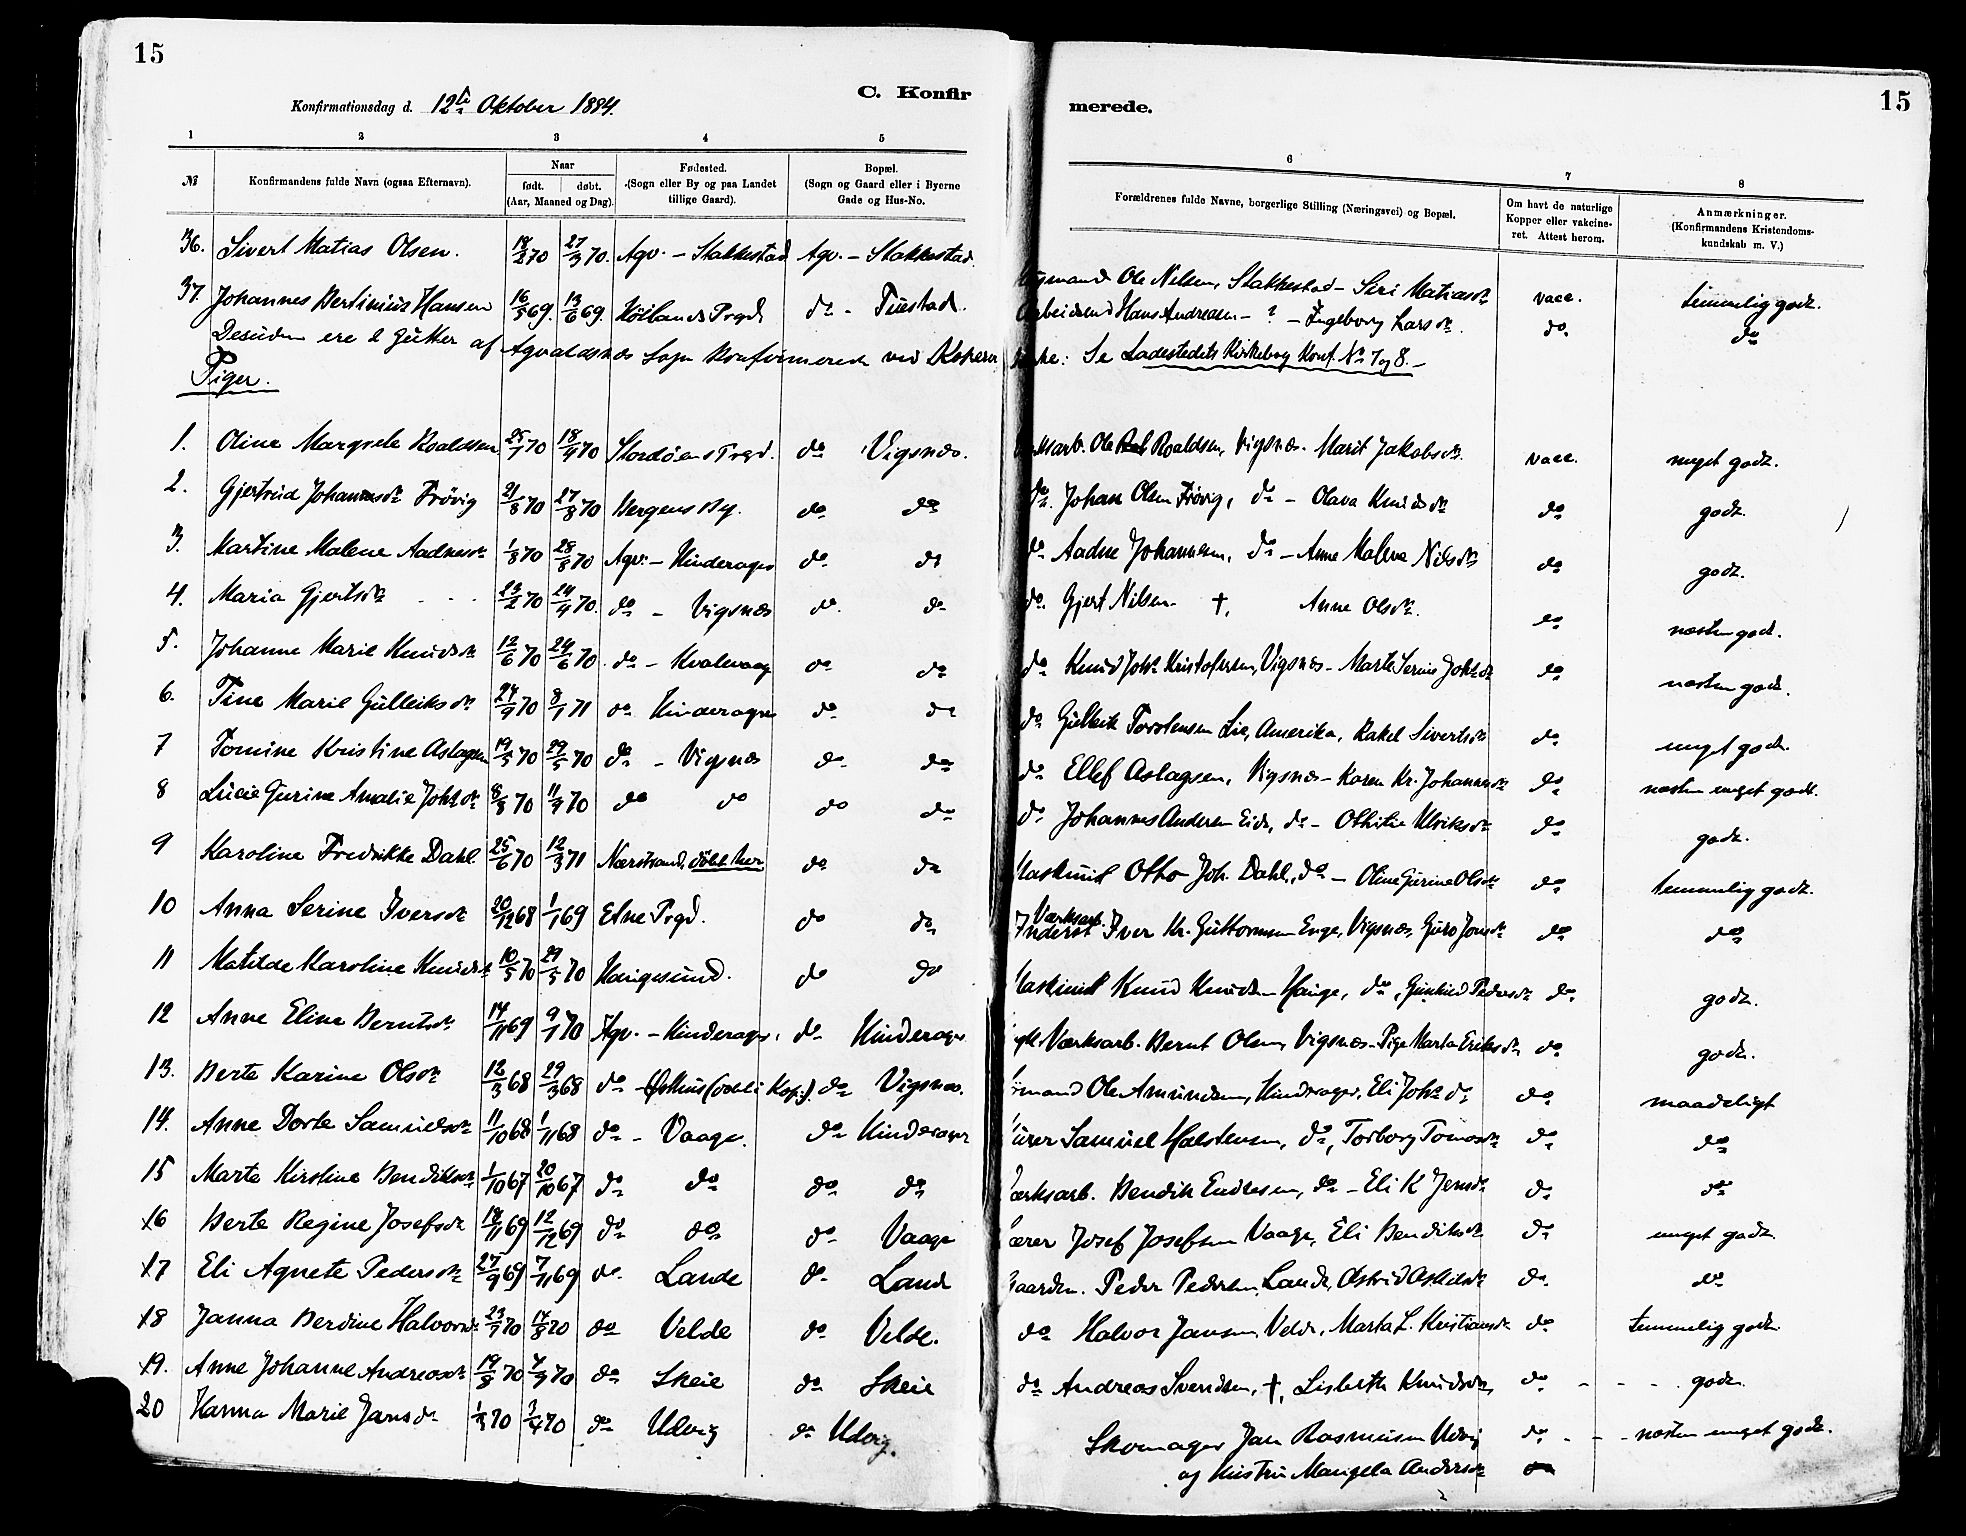 15
Konfirmationsdag d. 12te Oktober 1884.
C. Konfir
merede.
15
1 2 3 4 5 6 7 8
№ Konfirmandens fulde Navn (ogsaa Efternavn). Naar født. døbt. (Aar, Maaned og Dag). Fødested. (Sogn eller By og paa Landet tillige Gaard). Bopæl. (Sogn og Gaard eller i Byerne Gade og Hus-No. Forældrenes fulde Navne, borgerlige Stilling (Næringsvei) og Bopæl. Om havt de naturlige Kopper eller vakcineret. Attest herom. Anmærkninger. (Konfirmandens Kristendomskundskab m. V.)
36. Sivert Matias Olsen. 27/3 70. Agv. - Stakkestad Agv. - Stakkestad. Ole Nilsen, Stakkestad - Siri Matiasdr vacc. temmelig godt.
37. Johannes Bertinius Hansen 16/5 69. 13/6 69. Höilands Prgd. do - Tuestad. Hans Andreasen - ? - Ingeborg Larsdr. do. do
Desuden ere 2 Gutter af Agvaldsnæs Sogn konfirmerede ved Kopervi Se Ladestedets Kirkebog Konf. No 7 og 8. -
Piger.
1. Oline Margrete Roaldsen 25/1 70 18/4 70 Stordöens Prgd. do Vigsnæs. Ole Roaldsen, Vigsnæs. Marit Jakobsdr. vacc. meget godt.
2. Gjertrud Johannesdr Frövig 21/8 70 Bergens By. do do do. Johan Olsen Frövig, do - Olava Knudsdr do godt.
3. Martine Malene Aadnesdr 1/8 70 28/8 70 Agv. - Hinderager do. do do Aadne Johannesen, do - Anne Malene Nilsdr do godt.
4. Maria Gjertsdr 23/2 70 24/4 70. do - Vigsnæs do. do do. Gjert Nilsen †, Anne Olsdr. do næsten godt.
5. Johanne Marie Knudsdr 12/6 70 24/6 70. do - Kvalevaag do do do Knud Johs Kristofersen, Vigsnæs - Marte Serine Johsdr do næsten godt.
6. Tine Marie Gulleiksdr 24/9 70 8/1 71 do Hinderager do do do Gulleik Torstensen Lie, Amerika, Rakel Sivertsdr do. meget godt.
7 Tomine Kristine Aslagsen 19/5 70 29/5 70 do - Vigsnæs do. do do Ellef Aslagsen, Vigsnæs - Karen Kr. Johannesdr do næsten meget godt.
8 Lucie Gurine Amalie Johsdr 8/8 70 11/9 70 do do do do do Johannes Andersen Eide, do - Othilie Ulriksdr do godt.
9 Karoline Fredrikke Dahl 25/6 70 12/3 71 Nærstrand, döbt her do do Maskinist Otto Joh. Dahl, do - Oline Gurine Olsdr do temmelig godt.
10 Anna Serine Iversdr 20/12 68 1/1 69 Etne Prgd. do do Værksarb. Inderst Iver Kr. Guttormsen Enge, Vigsnæs, Guro Jonsdr do do
11 Matilde Karoline Knudsdr 10/5 70 29/5 70 Haugesund. do do Maskinist Knud Knudsen Hauge, do, Gunhild Pedersdr do godt.
12 Anne Eline Berntsdr 14/11 69 9/1 70 Agv. - Hinderager, do Hinderager Værksarb. Bernt Olsen, Vigsnæs - Pige Marta Eriksdr do godt.
13. Berte Karine Olsdr 12/3 68 29/3 68 do - Østhus (döbt i Kop.). do Vigsnæs. Ole Amundsen, Hinderager, Eli Johsdr do maadeligt
14. Anne Dorte Samuelsdr 11/10 68 1/11 68 do - Vaage. do Hinderager Samuel Halstensen, do, Torborg Tomasdr do do
15 Marte Kirstine Bendiksdr 1/10 67 20/10 67 do do do do Værksarb. Bendik Endresen, do - Eli K Jensdr do do
16 Berte Regine Josefsdr 18/11 69 12/12 69 do do do Vaage Josef Josefsen Vaage, Eli Bendiksdr do meget godt.
17 Eli Agnete Pedersdr 27/9 69 7/11 69 do. Lande do Lande Gaardm. Peder Pedersen Lande, Astrid Askildsdr do. do
18 Janna Berdine Halvorsdr 23/7 70 14/8 70 do Velde do Velde. do Halvor Jansen Velde, Marta L. Kristiansdr do temmelig godt.
19. Anne Johanne Andreasdr 19/8 70 4/9 70 do Skeie do Skeie do Andreas Svendsen, †, Lisbeth Knudsdr, do - - - godt.
20 Hanna Marie Jansdr 1/3 70 3/4 70 do Udvig do Udvig. Skomager Jan Rasmusen Udvig do - - - næsten meget godt.
og Hustru Mangela Andersdr